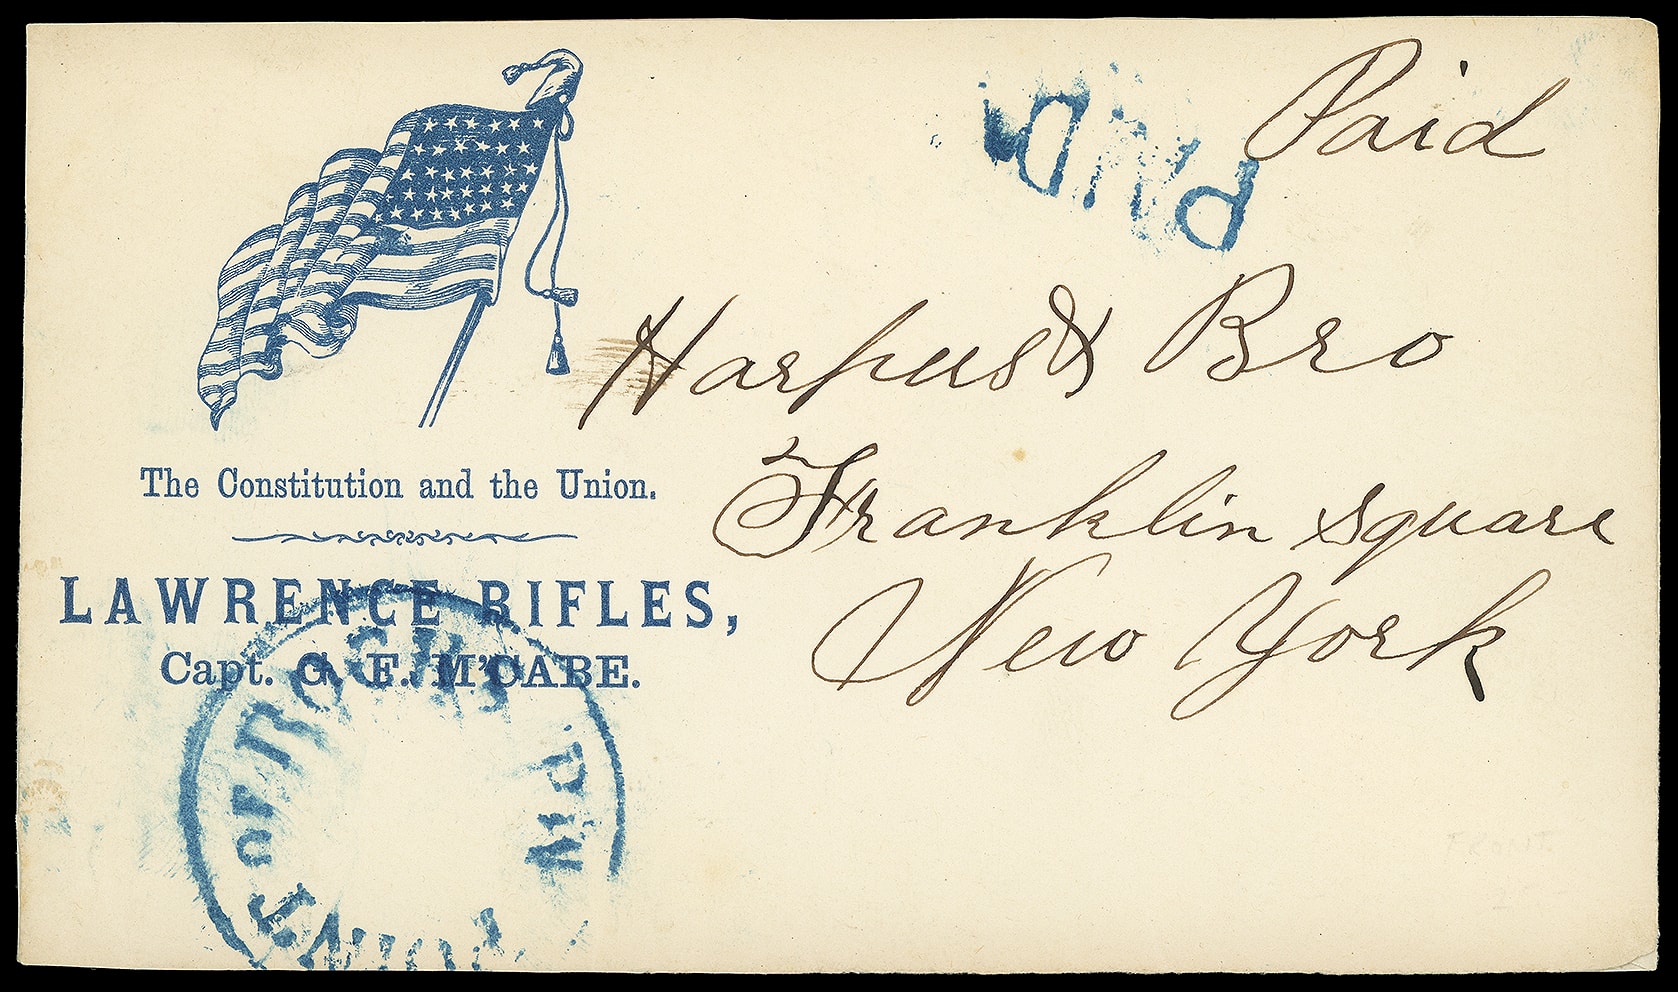 Paid
PAID
Harpers & Bro
Franklin square
New York
The Constitution and the Union.
LAWRENCE RIFLES,
Capt. G. F. M'CABE.
POINT OF ROCKS MD